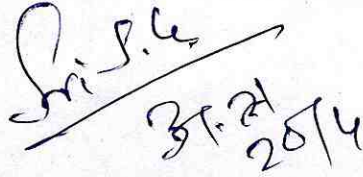 Sri S.K.
अ.स
20/4